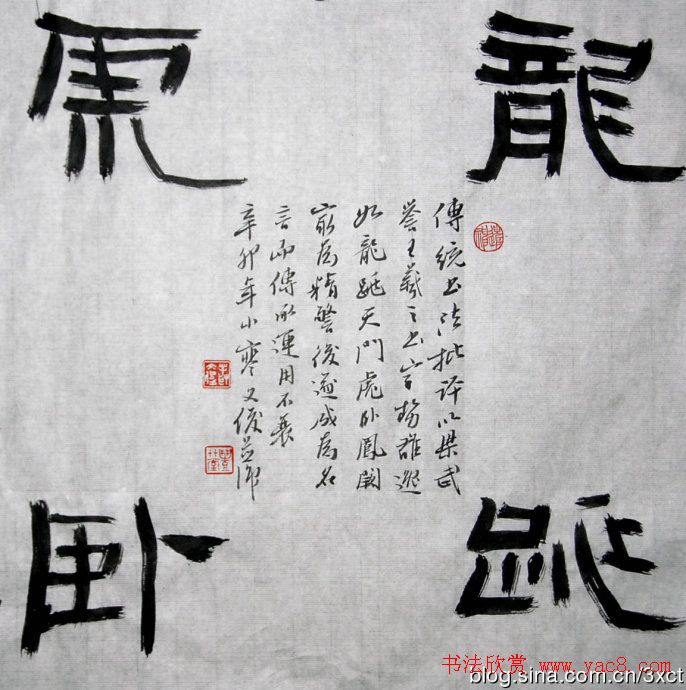 龍
跳
虎
卧
傳統书法批評以梁武
誉王羲之书字势雄逸
如龍跳天門虎卧鳳闕
最为精警後遂成为名
言而傳承運用不衰
辛卯年小寒
书法欣赏 www.yac8.com
blog.sina.com.cn/3xct